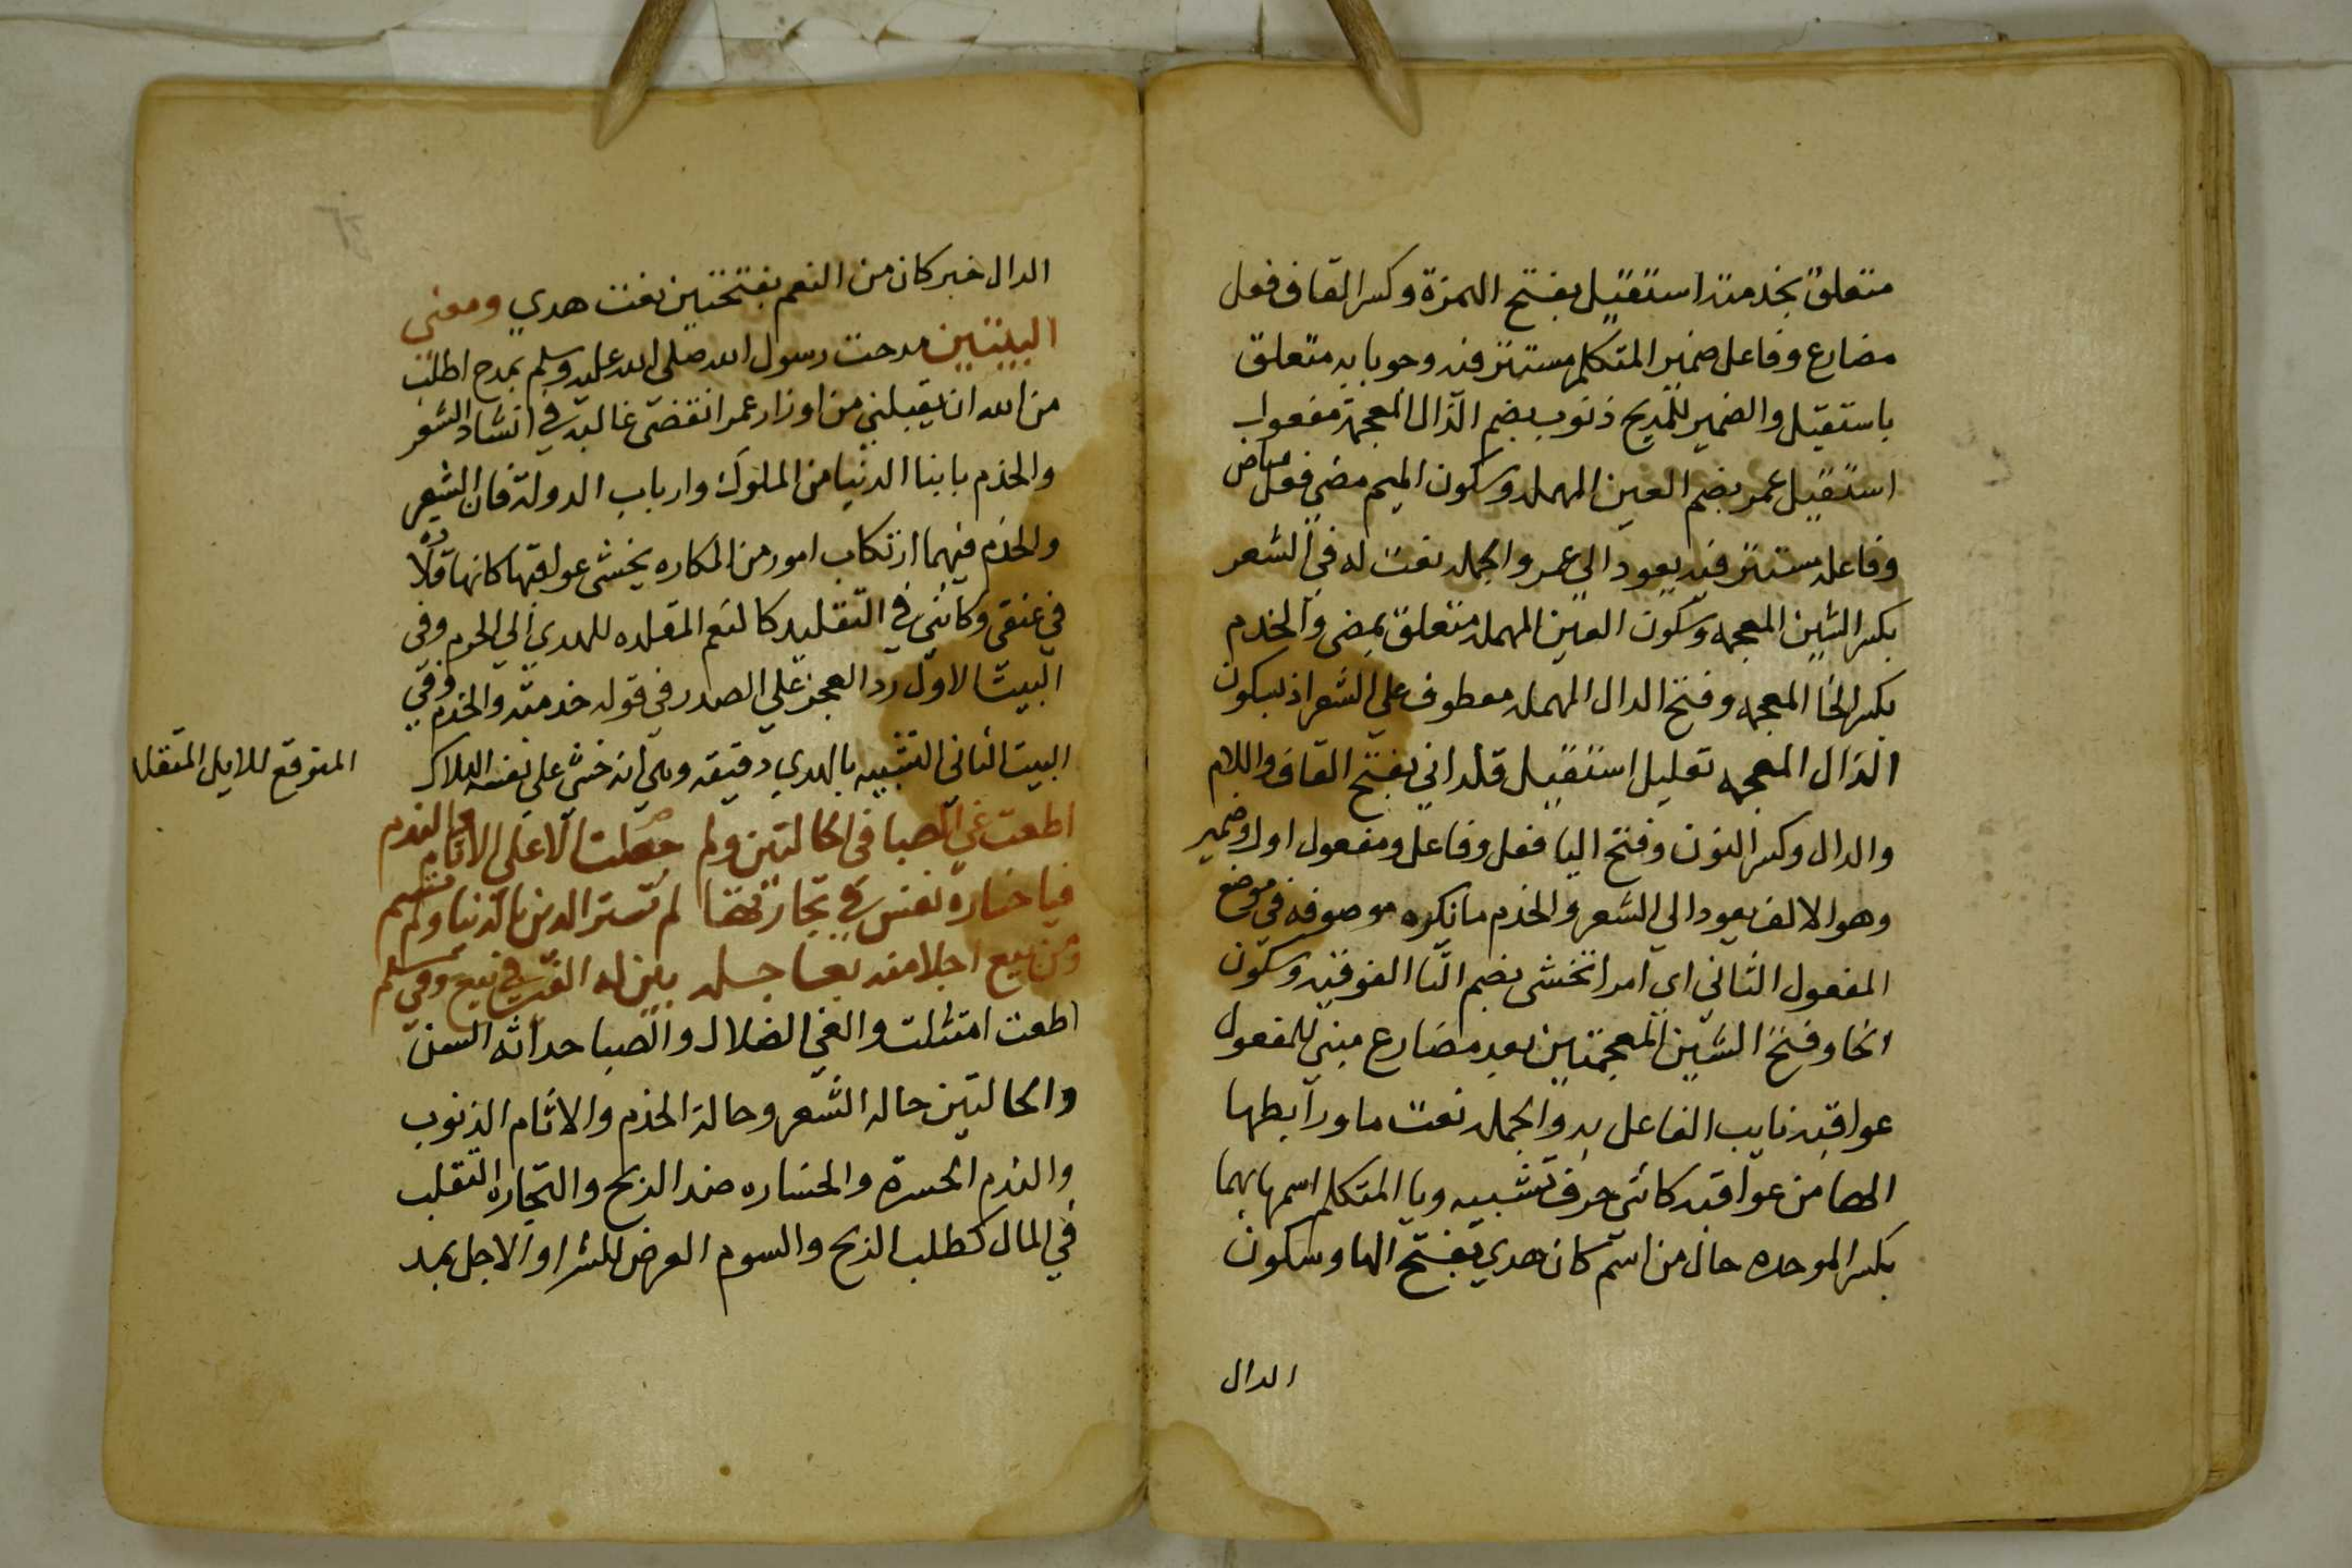 متعلق بخدمته استقيل بفتح الهمزة وكسر القاف فعل
مضارع وفاعل ضمير المتكلم مستتر فيه وجوبا به متعلق
باستقيل والضمير للمديح ذنوب بضم الذال المعجمة مفعول
استقيل عمر بضم العين المهمله وسكون الميم مضي فعل ماض
وفاعله مستتر فيه يعود الي عمر والجمله نعت له في الشعر
بكسر الشين المعجمه وسكون العين المهمله متعلق بمضي والخدم
بكسر الخا المعجمه وفتح الدال المهمله معطوف علي الشعر اذ بسكون
الذال المعجمه تعليل استقيل قلداني بفتح القاف واللام
والدال وكسر النون وفتح اليا فعل وفاعل ومفعول اول وضمير
وهو الالف يعود الي الشعر والخدم ما نكره موصوفه في موضع
المفعول الثاني اي امرا تخشى بضم التا الفوقيه وسكون
الخا وفتح الشين المعجمتين بعد مضارع مبني للمفعول
عواقبه نايب الفاعل به والجمله نعت ما ورابطها
الها من عواقبه كانني حرف تشبيه ويا المتكلم اسمها بهما
بكسر الموحده حال من اسم كان هدي بفتح الها وسكون
الدال
الدال خبر كان من النعم بفتحتين نعت هدي ومعني
البيتين مدحت رسول الله صلى الله عليه وسلم بمدح اطلب
من الله ان يقيلني من اوزار عمر انقضى غالبه في انشاد الشعر
والخدم بابنا الدنيا من الملوك وارباب الدولة فان الشعر
والخدم فيهما ارتكاب امور من المكاره يخشى عواقبها كانها قلاده
في عنقي وكانني في التقليد كالنعم المقلده للهدي الي الحرم وفي
البيت الاول رد العجز علي الصدر في قوله خدمته والخدم وفي
البيت الثاني التشبيه بالهدي دقيقه وهي انه خشي على نفسه الهلاك
المتوقع للابل المتقلد
اطعت غي الصبا في الحالتين ولم حصلت الا علي الاثام والندم
فيا خسارة نفس في تجارتها لم تشتر الدين بالدنيا ولم تسم
ومن يبع اجلا منه بعاجله يبن له الغبن في بيع وفي سلم
اطعت امتثلت والغي الضلال والصبا حداثه السن
والحالتين حاله الشعر وحالة الخدم والاثام الذنوب
والندم الحسرة والخساره ضد الربح والتجاره التقلب
في المال كطلب الربح والسوم العرض للشرا والاجل بمد